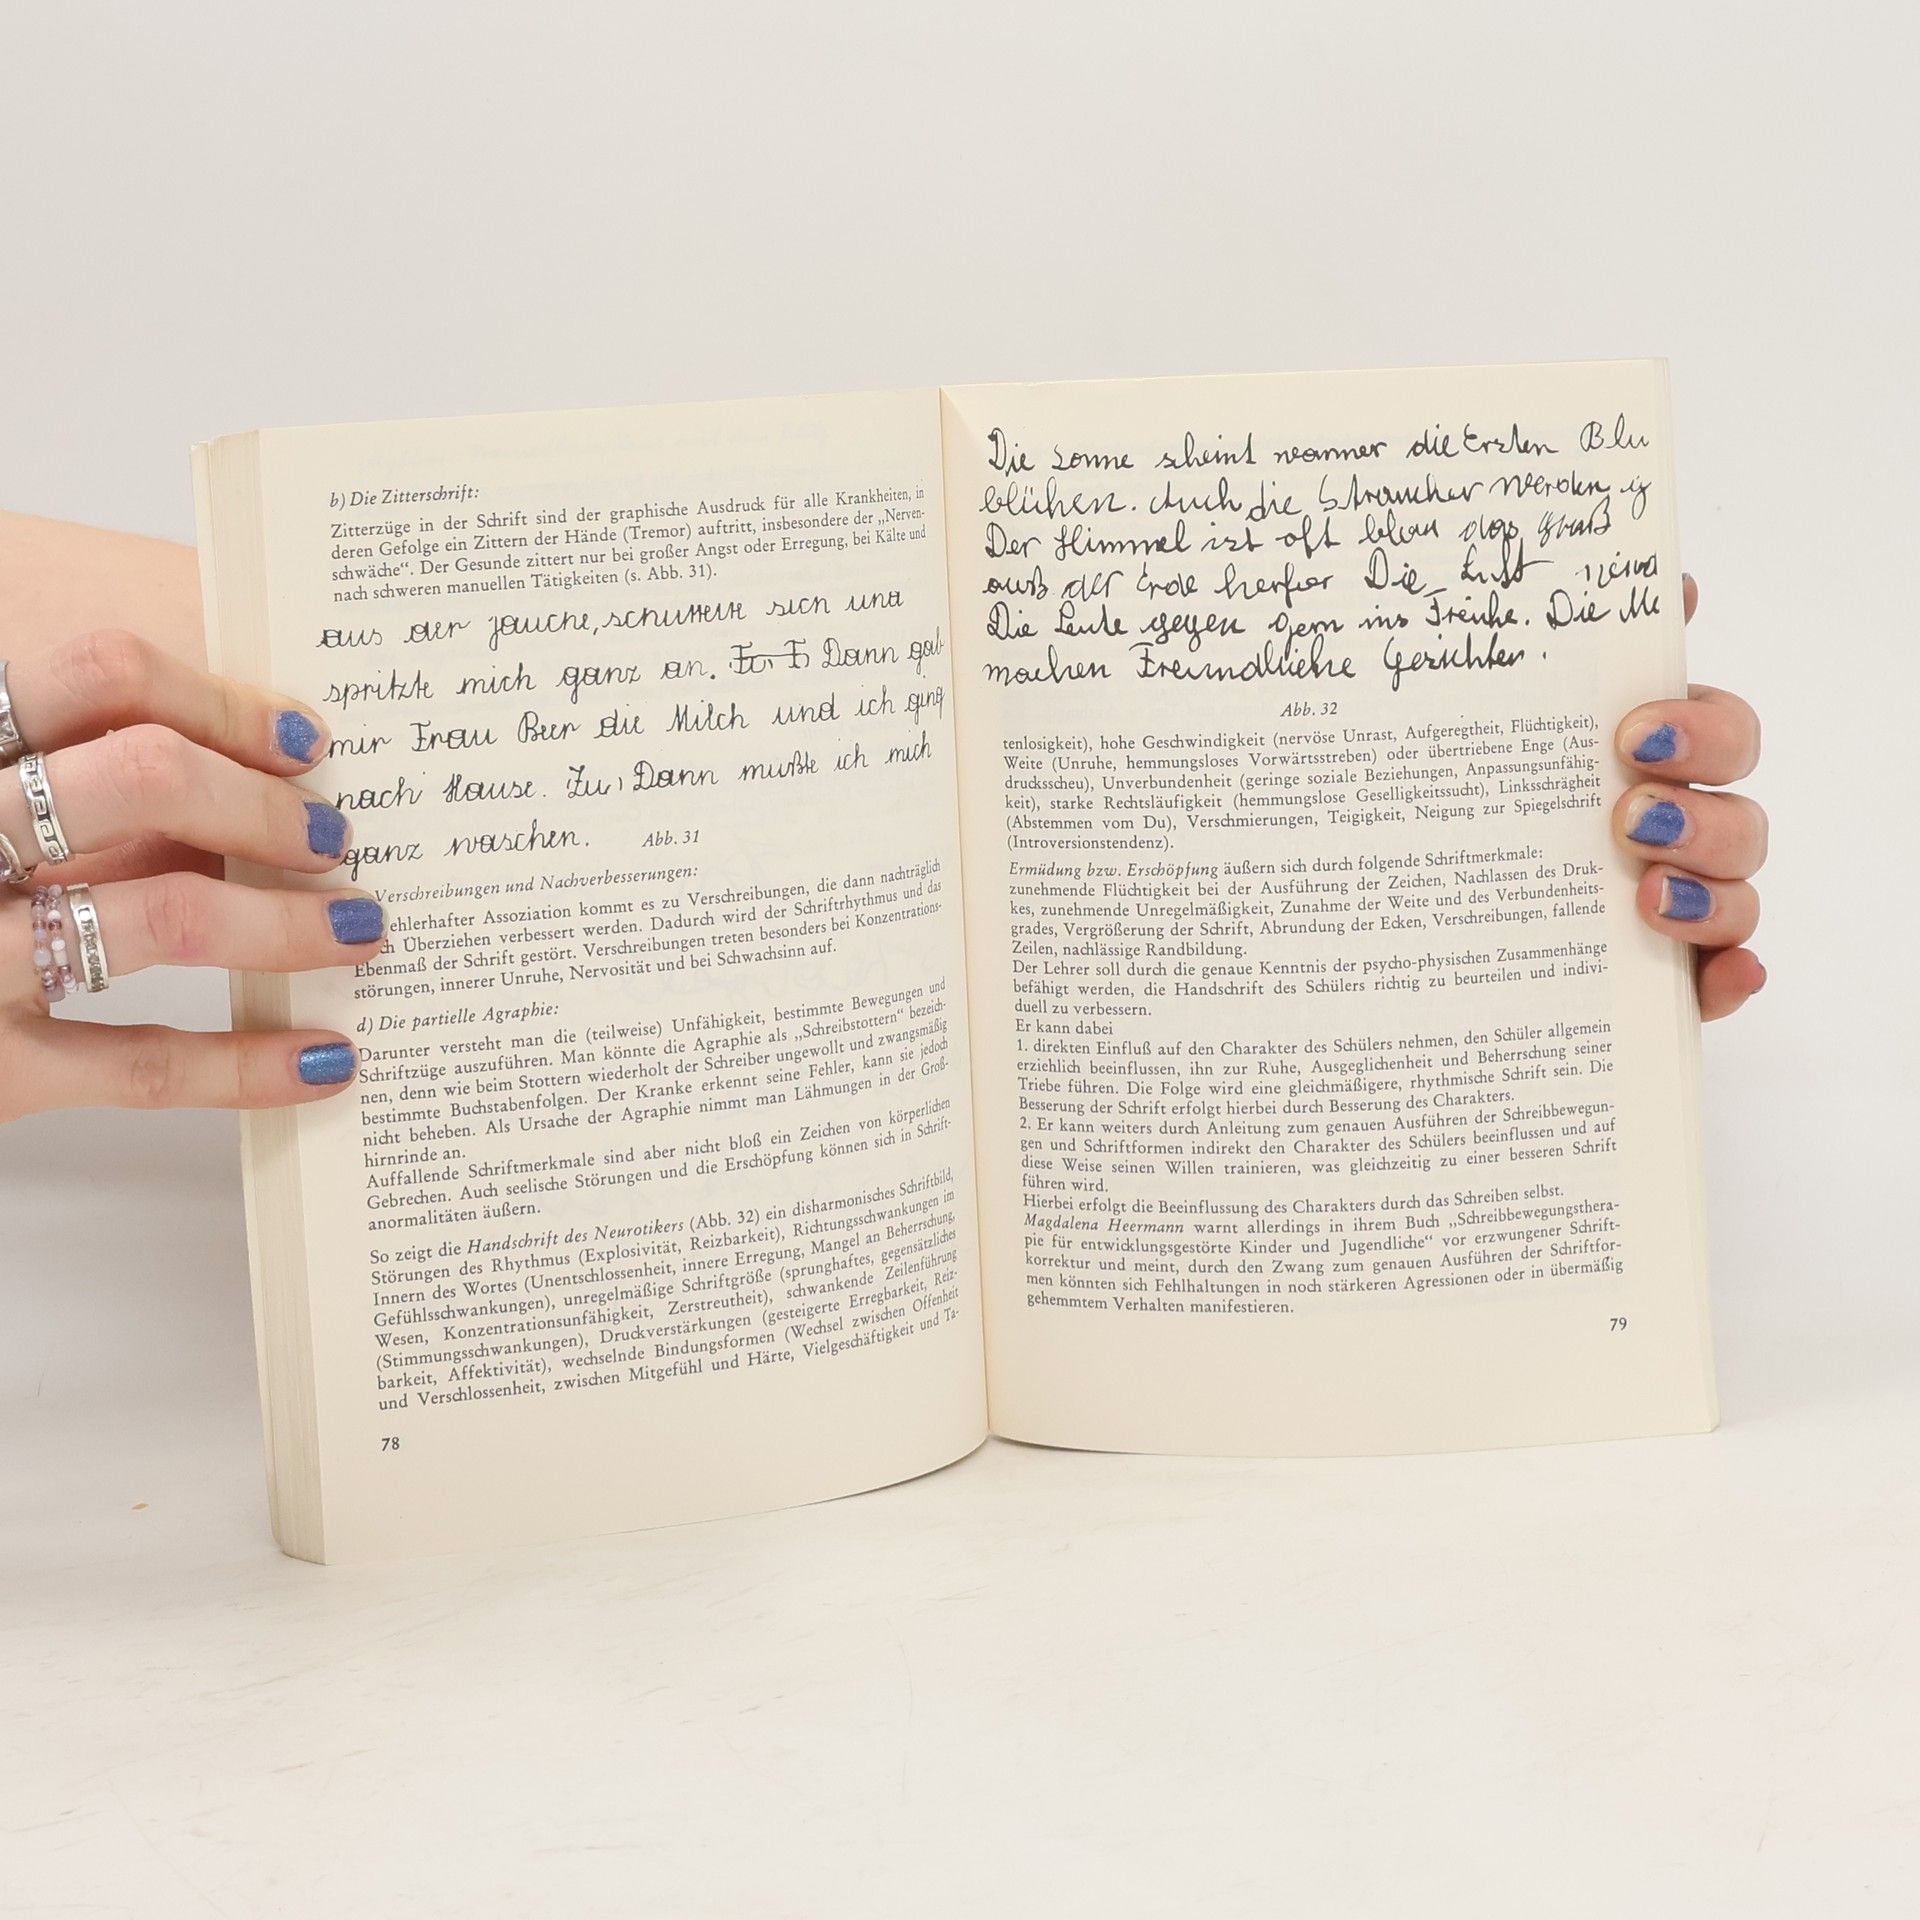 b) Die Zitterschrift:
Zitterzüge in der Schrift sind der graphische Ausdruck für alle Krankheiten, in
deren Gefolge ein Zittern der Hände (Tremor) auftritt, insbesondere der „Nerven-
schwäche“. Der Gesunde zittert nur bei großer Angst oder Erregung, bei Kälte und
nach schweren manuellen Tätigkeiten (s. Abb. 31).
aus der Jauche, schüttelte sich und
spritzte mich ganz an. Dann gab
mir Frau Beer die Milch und ich ging
nach Hause. Zu, Dann mußte ich mich
ganz waschen.
Abb. 31
Verschreibungen und Nachverbesserungen:
ehlerhafter Assoziation kommt es zu Verschreibungen, die dann nachträglich
ch Überziehen verbessert werden. Dadurch wird der Schriftrhythmus und das
Ebenmaß der Schrift gestört. Verschreibungen treten besonders bei Konzentrations-
störungen, innerer Unruhe, Nervosität und bei Schwachsinn auf.
d) Die partielle Agraphie:
Darunter versteht man die (teilweise) Unfähigkeit, bestimmte Bewegungen und
Schriftzüge auszuführen. Man könnte die Agraphie als „Schreibstottern“ bezeich-
nen, denn wie beim Stottern wiederholt der Schreiber ungewollt und zwangsmäßig
bestimmte Buchstabenfolgen. Der Kranke erkennt seine Fehler, kann sie jedoch
nicht beheben. Als Ursache der Agraphie nimmt man Lähmungen in der Groß-
hirnrinde an.
Auffallende Schriftmerkmale sind aber nicht bloß ein Zeichen von körperlichen
Gebrechen. Auch seelische Störungen und die Erschöpfung können sich in Schrift-
anormalitäten äußern.
So zeigt die Handschrift des Neurotikers (Abb. 32) ein disharmonisches Schriftbild,
Störungen des Rhythmus (Explosivität, Reizbarkeit), Richtungsschwankungen im
Innern des Wortes (Unentschlossenheit, innere Erregung, Mangel an Beherrschung,
Gefühlsschwankungen), unregelmäßige Schriftgröße (sprunghaftes, gegensätzliches
Wesen, Konzentrationsunfähigkeit, Zerstreutheit), schwankende Zeilenführung
(Stimmungsschwankungen), Druckverstärkungen (gesteigerte Erregbarkeit, Reiz-
barkeit, Affektivität), wechselnde Bindungsformen (Wechsel zwischen Offenheit
und Verschlossenheit, zwischen Mitgefühl und Härte, Vielgeschäftigkeit und Ta-
78
Die sonne scheint warmer die Ersten Blu
blühen. Auch die Straucher Werden
Der Himmel ist oft blau das graß
auß der Erde herfor Die Luft
Die Leute gegen gern ins Freiche. Die Me
machen Freundlliche Gesichter.
Abb. 32
tenlosigkeit), hohe Geschwindigkeit (nervöse Unrast, Aufgeregtheit, Flüchtigkeit),
Weite (Unruhe, hemmungsloses Vorwärtsstreben) oder übertriebene Enge (Aus-
drucksscheu), Unverbundenheit (geringe soziale Beziehungen, Anpassungsunfähig-
keit), starke Rechtsläufigkeit (hemmungslose Geselligkeitssucht), Linksschrägheit
(Abstemmen vom Du), Verschmierungen, Teigigkeit, Neigung zur Spiegelschrift
(Introversionstendenz).
Ermüdung bzw. Erschöpfung äußern sich durch folgende Schriftmerkmale:
zunehmende Flüchtigkeit bei der Ausführung der Zeichen, Nachlassen des Druk-
kes, zunehmende Unregelmäßigkeit, Zunahme der Weite und des Verbundenheits-
grades, Vergrößerung der Schrift, Abrundung der Ecken, Verschreibungen, fallende
Zeilen, nachlässige Randbildung.
Der Lehrer soll durch die genaue Kenntnis der psycho-physischen Zusammenhänge
befähigt werden, die Handschrift des Schülers richtig zu beurteilen und indivi-
duell zu verbessern.
Er kann dabei
1. direkten Einfluß auf den Charakter des Schülers nehmen, den Schüler allgemein
erziehlich beeinflussen, ihn zur Ruhe, Ausgeglichenheit und Beherrschung seiner
Triebe führen. Die Folge wird eine gleichmäßigere, rhythmische Schrift sein. Die
Besserung der Schrift erfolgt hierbei durch Besserung des Charakters.
2. Er kann weiters durch Anleitung zum genauen Ausführen der Schreibbewegun-
gen und Schriftformen indirekt den Charakter des Schülers beeinflussen und auf
diese Weise seinen Willen trainieren, was gleichzeitig zu einer besseren Schrift
führen wird.
Hierbei erfolgt die Beeinflussung des Charakters durch das Schreiben selbst.
Magdalena Heermann warnt allerdings in ihrem Buch „Schreibbewegungsthera-
pie für entwicklungsgestörte Kinder und Jugendliche“ vor erzwungener Schrift-
korrektur und meint, durch den Zwang zum genauen Ausführen der Schriftfor-
men könnten sich Fehlhaltungen in noch stärkeren Agressionen oder in übermäßig
gehemmtem Verhalten manifestieren.
79